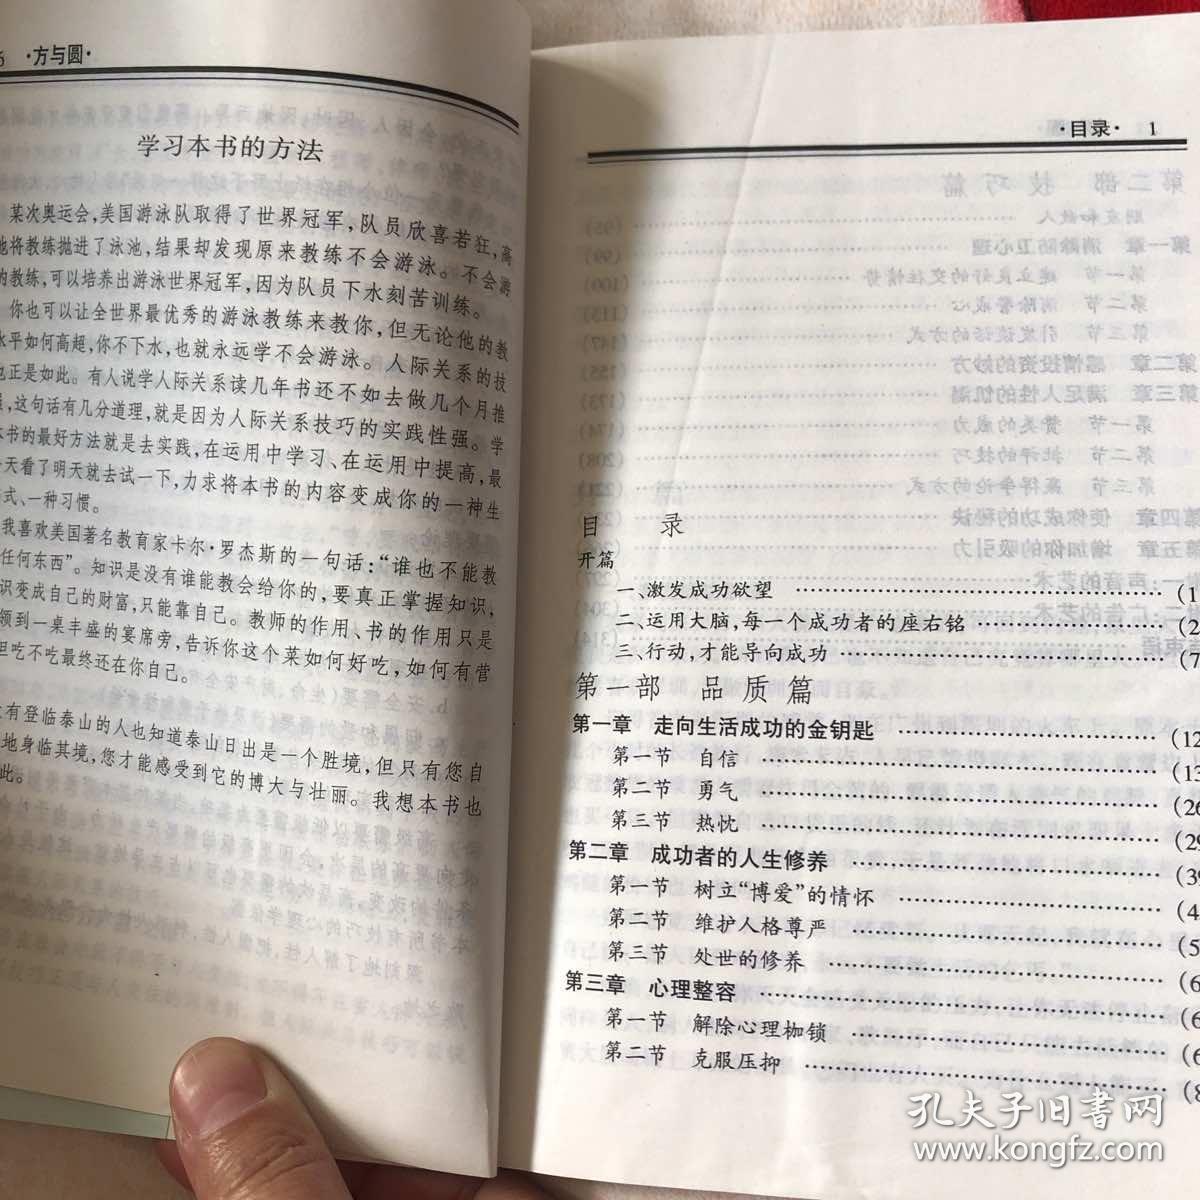 6 ·方与圆·
学习本书的方法
某次奥运会,美国游泳队取得了世界冠军,队员欣喜若狂,高
地将教练抛进了泳池,结果却发现原来教练不会游泳。不会游
的教练,可以培养出游泳世界冠军,因为队员下水刻苦训练。
你也可以让全世界最优秀的游泳教练来教你,但无论他的教
水平如何高超,你不下水,也就永远学不会游泳。人际关系的技
也正是如此。有人说学人际关系读几年书还不如去做几个月推
,这句话有几分道理,就是因为人际关系技巧的实践性强。学
本书的最好方法就是去实践,在运用中学习、在运用中提高,最
天看了明天就去试一下,力求将本书的内容变成你的一神生
式、一种习惯。
我喜欢美国著名教育家卡尔·罗杰斯的一句话:“谁也不能教
任何东西”。知识是没有谁能教会给你的,要真正掌握知识,
识变成自己的财富,只能靠自己。教师的作用、书的作用只是
领到一桌丰盛的宴席旁,告诉你这个菜如何好吃,如何有营
但吃不吃最终还在你自己。
有登临泰山的人也知道泰山日出是一个胜境,但只有您自
地身临其境,您才能感受到它的博大与壮丽。我想本书也
此。
·目录· 1
目 录
开篇
一、激发成功欲望 ……(1
二、运用大脑,每一个成功者的座右铭 ……(2
三、行动,才能导向成功 ……(7
第一部 品质篇
第一章 走向生活成功的金钥匙 ……(12
第一节 自信 ……(13
第二节 勇气 ……(26
第三节 热忱 ……(29
第二章 成功者的人生修养 ……(39
第一节 树立“博爱”的情怀 ……(4
第二节 维护人格尊严 ……(5
第三节 处世的修养 ……(6
第三章 心理整容 ……(6
第一节 解除心理枷锁 ……(6
第二节 克服压抑 ……(8
孔夫子旧书网
www.kongfz.com